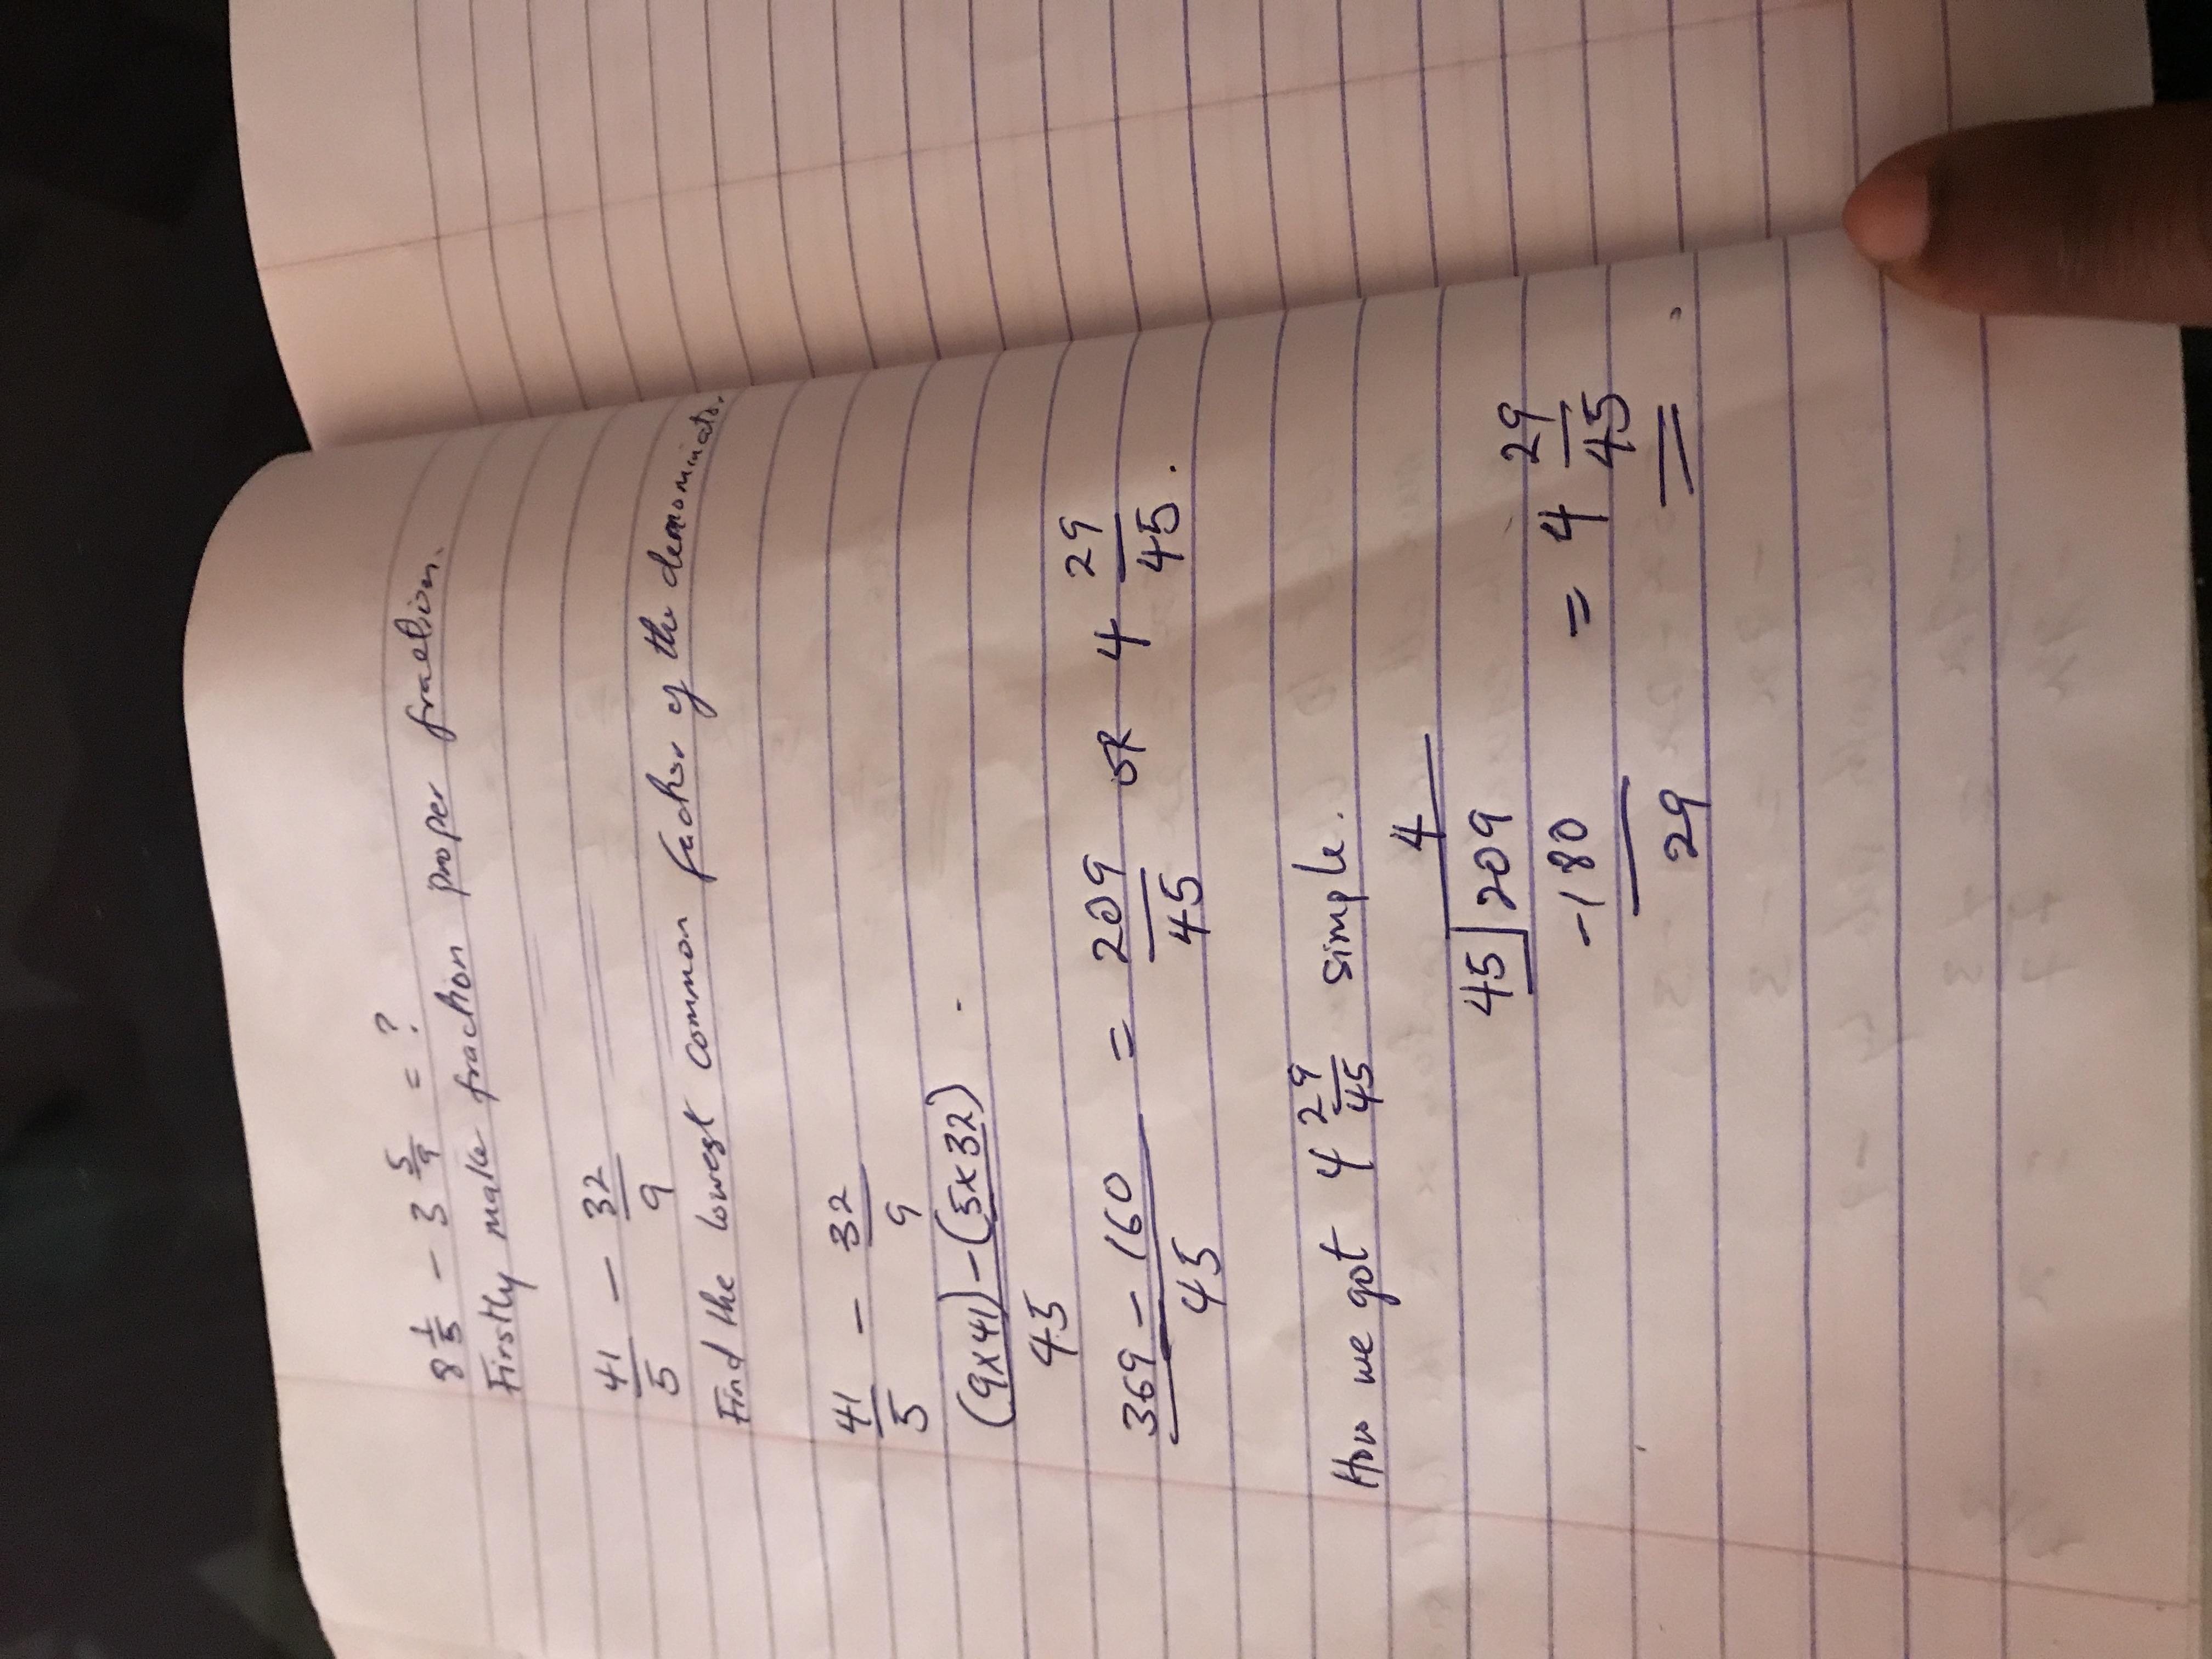 8 1/5 - 3 5/9 = ?
Firstly make fraction proper fraction.
41/5 - 32/9
Find the lowest common factor of the denominator.
41/5 - 32/9
(9x41) - (5x32) .
45
369 - 160/45 = 209/45 or 4 29/45 .
How we got 4 29/45 simple.
4
45 209
-180 = 4 29/45 .
29